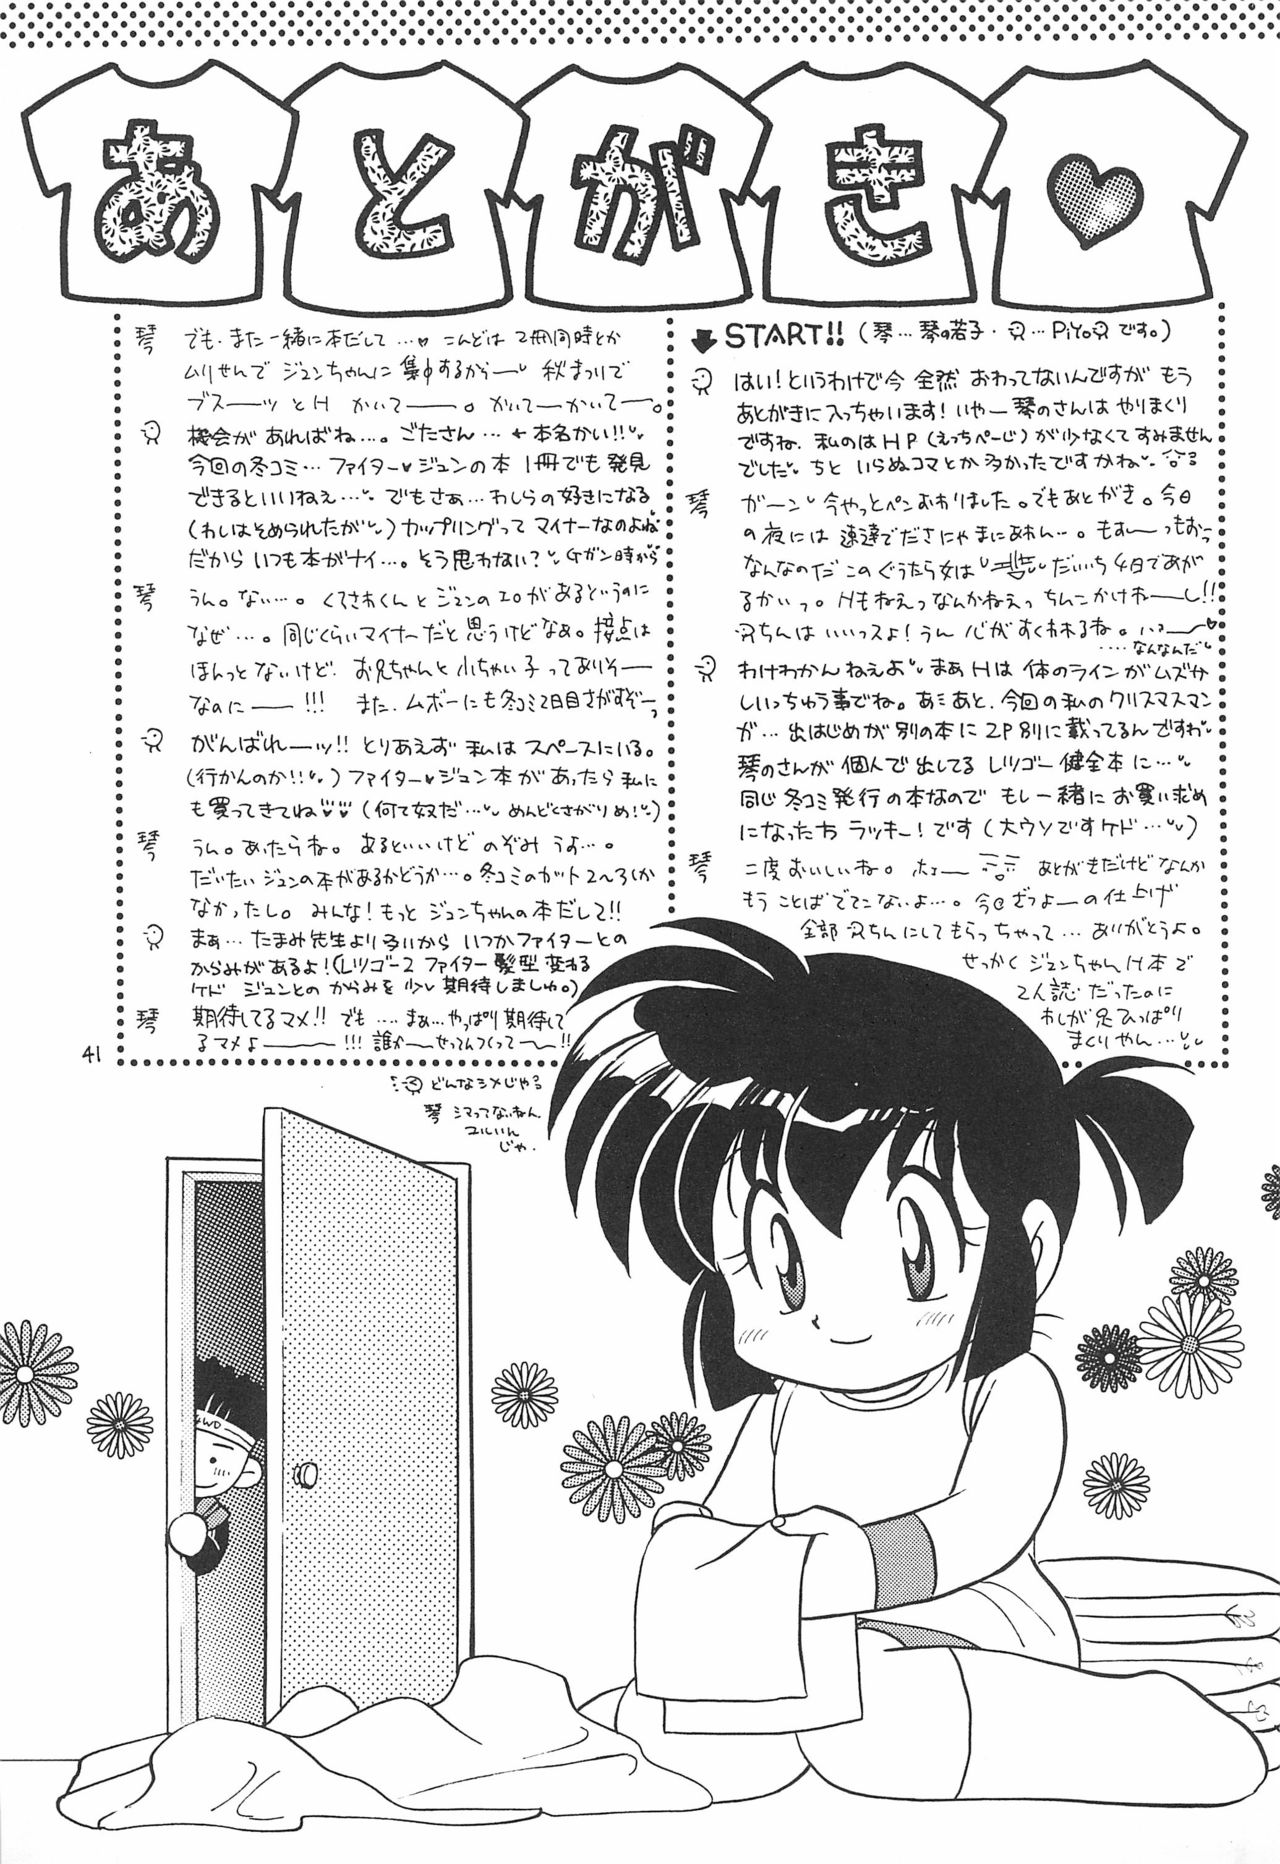 あとがき♥
START!! (琴…琴の若子・…PiYoです。)
はい!というわけで今 全然 おわってないんですが もう
あとがきに入っちゃいます!いやー 琴のさんは やりまくり
ですね. 私のは HP (えっちページ)が少なくてすみません
でした ちと いらぬコマとか多かったですかね
ガーン 今やっとペンおわりました。でもあとがき。今日
の夜には 速達でださにゃまにあわん…。もぉーっもおっ
なんなのだ このぐうたら女は だいち 4日であが
るかいっ。Hもねえっなんかねえっ ちんこかけねーし!!
ちんは いいっスよ!うん 心がすくわれるね。
....なんなんだ
わけわかんねえよ まぁ Hは 体のラインがムズか
しいっちゅう事でね。あ あと、今回の私のクリスマスマン
が…出はじめが別の本に2P別に載ってるんですわ
琴のさんが 個人で出してる レツゴー 健全本に…
同じ冬コミ発行の本なので もし一緒に お買い求め
になったら ラッキー!です (大ウソですケド…)
二度おいしいね。 あとがきだけどなんか
もう ことばでてこないよ…。今の仕上げ
全部ちんにしてもらっちゃって… ありがとうよ。
せっかく ジュンちゃんH本で
2人誌 だったのに
わしが足ひっぱり
まくりやん…
琴 でも、また一緒に本だして…♥ こんどは 2冊同時とか
ムリせんで ジュンちゃんに 集中するからー 秋まつりで
ブスーッと H かいてー。かいてーかいてー。
機会があればね…。ごたさん…←本名かい!!
今回の冬コミ…ファイター♥ジュンの本 1冊でも 発見
できるといいねぇ… でもさぁ…わしらの好きになる
(わしはそめられたが)カップリングって マイナーなのよね
だから いつも本がナイ…。そう思わない?
琴 うん。ない…。くろさわくんと ジュンのエロがあるというのに
なぜ…。同じくらいマイナーだと思うけどなぁ。接点は
ほんっとないけど、お兄ちゃんと 小ちゃい子 ってありそー
なのにー!!! また、ムボーにも冬コミ2日目さがすぞーっ
がんばれーッ!! とりあえず 私は スペースにいる。
(行かんのか!!)ファイター♥ジュン本 があったら 私に
も買ってきてね (何て奴だ… めんどくさがりめ!)
琴 うん。あったらね。あるといいけど のぞみ うすー。
だいたい ジュンの本があるかどうか…。冬コミのカット 2〜3しか
なかったし。みんな!もっと ジュンちゃんの本だして!!
まぁ…たまみ先生より ろいから いつかファイターとの
からみがあるよ!(レツゴー2 ファイター 髪型 変わる
ケド ジュンとの からみを 少し期待しましゅ。)
琴 期待してるマメ!! でも …まぁ…やっぱり 期待して
るマメよー!!! 誰かーせってんつくってー!!
41
どんなシメじゃる
琴 シマってないねん
ユルいん
じゃ.
4WD